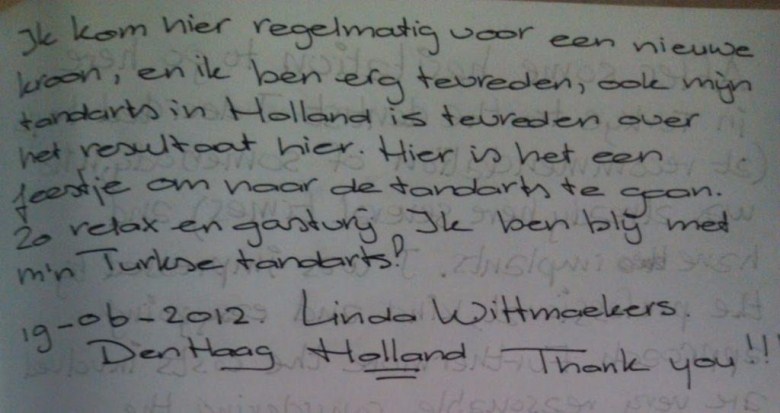 Ik kom hier regelmatig voor een nieuwe
kroon, en ik ben erg tevreden, ook mijn
tandarts in Holland is tevreden over
het resultaat hier. Hier is het een
feestje om naar de tandarts te gaan.
Zo relax en gastvrij Ik ben blij met
m'n Turkse tandarts!
19-06-2012. Linda Wittmaekers.
Den Haag Holland Thank you!!!